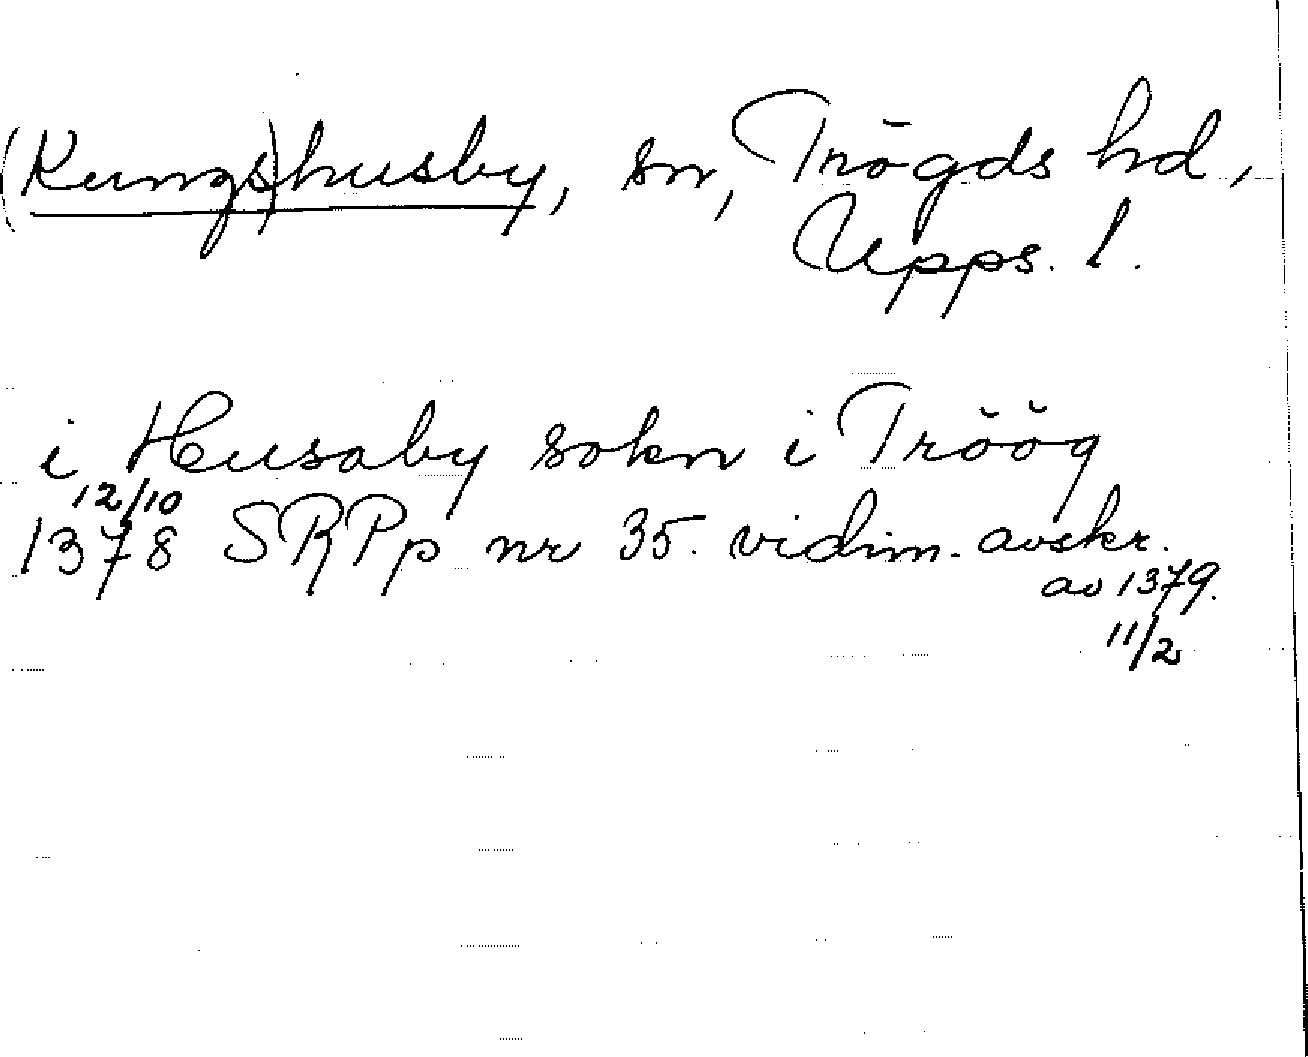 (Kungs)husby, sn, Trögds hd,
Upps. l.
i Husaby sokn i Tröög
12/10
1378 SRPp nr 35. vidim. avskr.
av 1379.
11/2